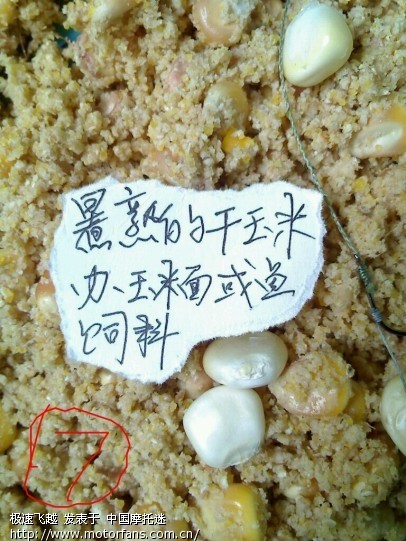 煮熟的干玉米
办玉米面或鱼
饲料
7
极速飞越 发表于 中国摩托迷
http://www.motorfans.com.cn/